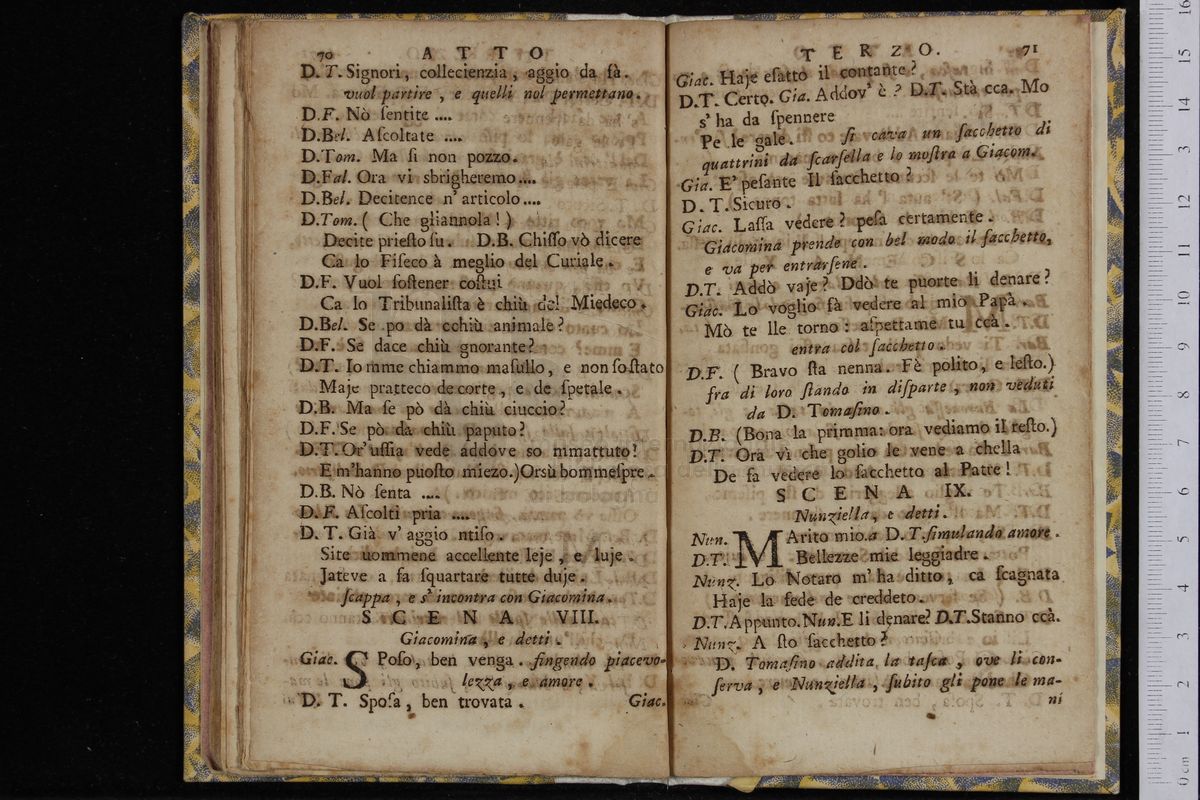 70 ATTO
D. T. Signori, collecienzia, aggio da fà.
vuol partire, e quelli nol permettano.
D.F. Nò ſentite ....
D.Bel. Aſcoltate ....
D.Tom. Ma ſi non pozzo.
D.Fal. Ora vi sbrigheremo....
D.Bel. Decitence n' articolo....
D.Tom. ( Che gliannola ! )
Decite prieſto ſu. D.B. Chiſſo vò dicere
Ca lo Fiſeco à meglio del Curiale.
D.F. Vuol ſoſtener coſtui
Ca lo Tribunaliſta è chiù del Miedeco.
D.Bel. Se po dà cchiù animale?
D.F. Se dace chiù gnorante?
D.T. Io mme chiammo maſullo, e non ſo ſtato
Maje pratteco de corte, e de ſpetale.
D.B. Ma ſe pò dà chiù ciuccio?
D.F. Se pò dà chiù paputo?
D.T. Or'uſſia vede addove so mmattuto!
E m'hanno puoſto miezo.) Orsù bommeſpre.
D.B. Nò ſenta ....
D.F. Aſcolti pria ....
D. T. Già v' aggio ntiſo.
Site uommene accellente leje, e luje.
Jateve a fa ſquartare tutte duje.
ſcappa, e s' incontra con Giacomina.
SCENA VIII.
Giacomina, e detti.
Giac. SPoſo, ben venga. fingendo piacevo-
lezza, e amore.
D. T. Spoſa, ben trovata. Giac.
TERZO. 71
Giac. Haje eſatto il contante?
D.T. Certo. Gia. Addov' è ? D.T. Stà cca. Mo
s' ha da ſpennere
Pe le gale. ſi cava un ſacchetto di
quattrini da ſcarſella e lo moſtra a Giacom.
Gia. E' peſante Il ſacchetto ?
D. T. Sicuro.
Giac. Laſſa vedere ? peſa certamente.
Giacomina prende con bel modo il ſacchetto,
e va per entrarſene.
D.T. Addò vaje? Ddò te puorte li denare?
Giac. Lo voglio fà vedere al mio Papà.
Mò te lle torno : aſpettame tu ccà.
entra còl ſacchetto.
D.F. ( Bravo ſta nenna. Fè polito, e leſto.)
fra di loro ſtando in diſparte, non veduti
da D. Tomaſino.
D.B. (Bona la primma: ora vediamo il reſto.)
D.T. Ora vì che golio le vene a chella
De fa vedere lo ſacchetto al Patre !
SCENA IX.
Nunziella, e detti.
Nun. MArito mio. a D. T. ſimulando amore.
D.T. Bellezze mie leggiadre.
Nunz. Lo Notaro m' ha ditto, ca ſcagnata
Haje la fede de creddeto.
D.T. Appunto. Nun. E li denare? D.T. Stanno ccà.
Nunz. A ſto ſacchetto ?
D. Tomaſino addita la taſca, ove li con-
ſerva, e Nunziella, ſubito gli pone le ma-
ni